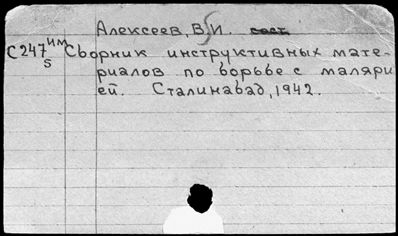 Алексеев, В.И. сост.
С247им Сборник инструктивных мате-
5 риалов по борьбе с маляри
ей. Сталинабад, 1942.